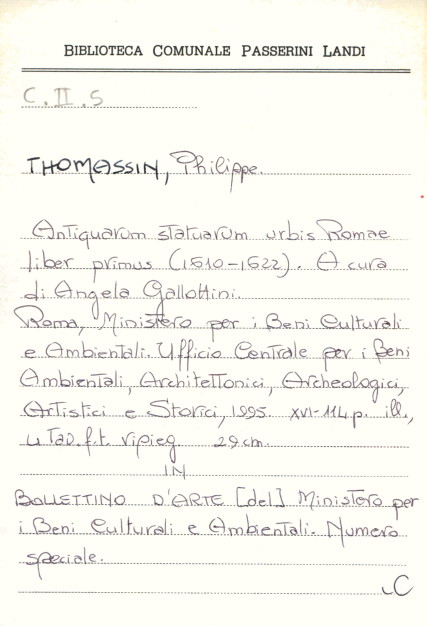 BIBLIOTECA COMUNALE PASSERINI LANDI
C.II.5
THOMASSIN, Philippe.
Antiquarum statuarum urbis Romae
liber primus (1610-1622). A cura
di Angela Gallottini.
Roma, Ministero per i Beni Culturali
e Ambientali. Ufficio Centrale per i Beni
Ambientali, Architettonici, Archeologici,
Artistici e Storici, 1995. XVI-114 p. ill.,
4 Tav. f.t. ripieg 29 cm.
IN
BOLLETTINO D'ARTE [del] Ministero per
i Beni Culturali e Ambientali. Numero
speciale.